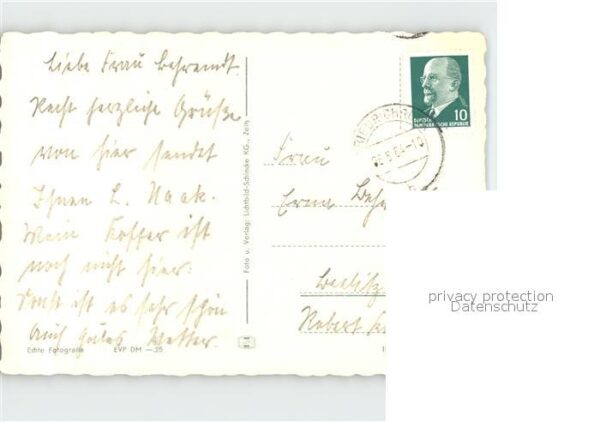 Liebe Frau Behrendt.
Recht herzliche Grüße
von hier sendet
Ihnen L. Naak.
Mein Koffer ist
noch nicht hier.
Sonst ist es sehr schön
Auch gutes Wetter.
Echte Fotografie EVP DM —.25
Foto u. Verlag: Lichtbild-Schincke KG., Zeitz
10
DEUTSCHE
DEMOKRATISCHE REPUBLIK
Frau
Erna
Beelitz
Robert
privacy protection
Datenschutz